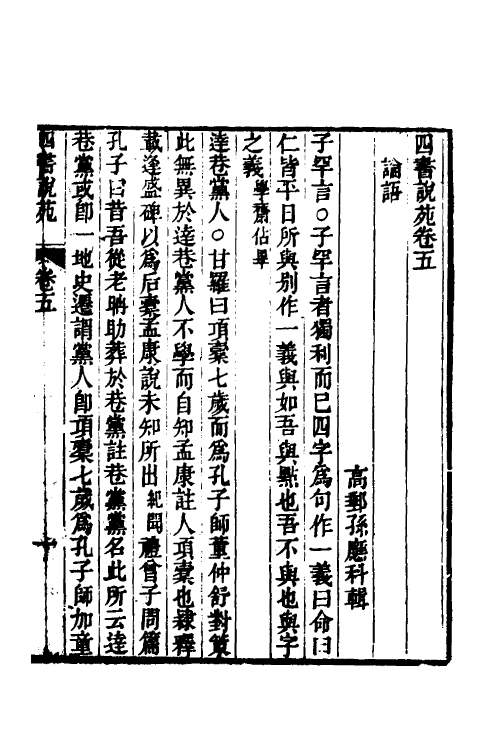 四書說苑卷五
論語
高郵孫應科輯
子罕言○子罕言者獨利而已四字為句作一義曰命曰
仁皆平日所與別作一義與如吾與點也吾不與也與字
之義學齋佔畢
達巷黨人○甘羅曰項橐七歲而為孔子師董仲舒對策
此無異於達巷黨人不學而自知孟康註人項橐也隸釋
載逢盛碑以為后橐孟康說未知所出紀聞禮曾子問篇
孔子曰昔吾從老聃助葬於巷黨註巷黨黨名此所云達
巷黨或卽一地史遷謂黨人卽項橐七歲為孔子師加童
四書說苑 卷五 一